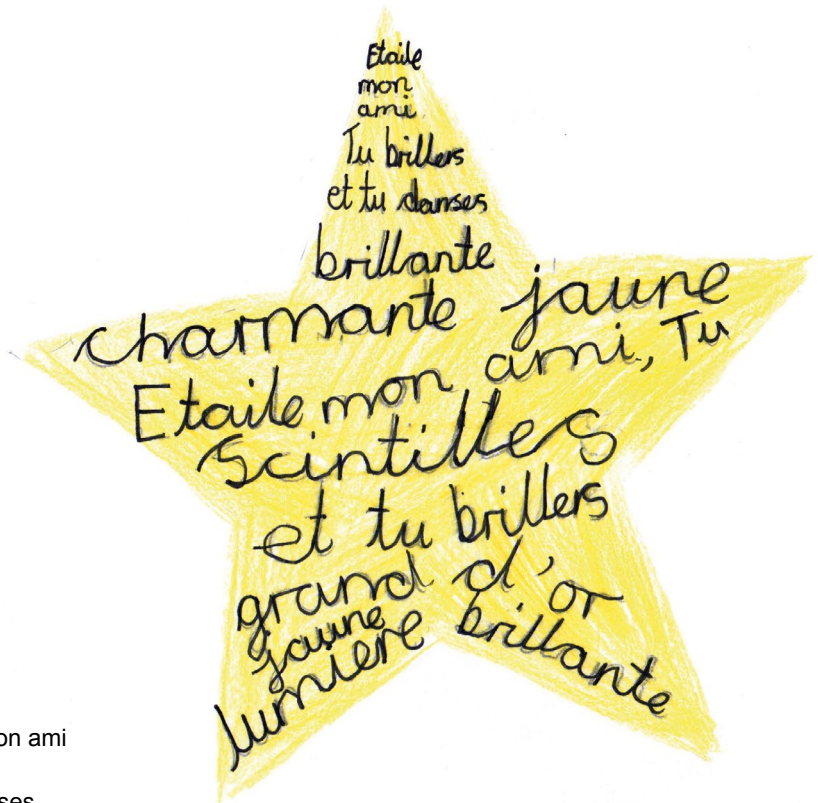 Etaile
mon
ami
Tu brillers
et tu danses
brillante
charmante jaune
Etaile mon ami, Tu
scintilles
et tu brillers
grand d'or
jaune
lumière brillante
on ami
ses